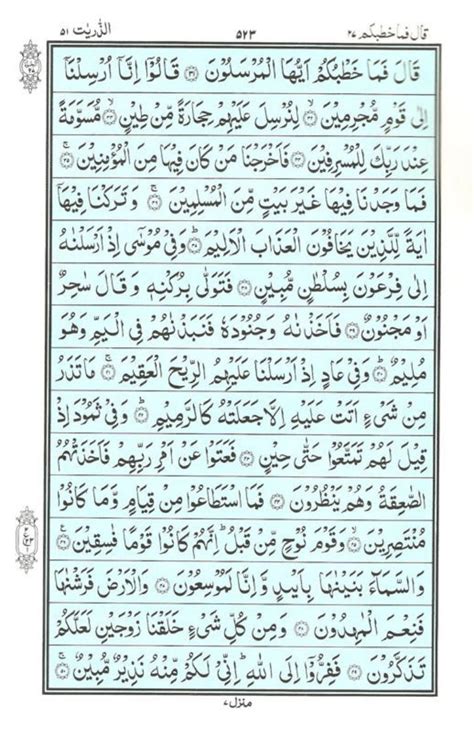 قال فما خطبكم ٢٧ ٥٢٣ الذّٰریٰت ٥١
قَالَ فَمَا خَطْبُكُمْ اَیُّهَا الْمُرْسَلُوْنَ ﴿٣١﴾ قَالُوْۤا اِنَّاۤ اُرْسِلْنَاۤ
اِلٰی قَوْمٍ مُّجْرِمِیْنَ ﴿٣٢﴾ لِنُرْسِلَ عَلَیْهِمْ حِجَارَةً مِّنْ طِیْنٍ ﴿٣٣﴾ مُّسَوَّمَةً
عِنْدَ رَبِّكَ لِلْمُسْرِفِیْنَ ﴿٣٤﴾ فَاَخْرَجْنَا مَنْ كَانَ فِیْهَا مِنَ الْمُؤْمِنِیْنَ ﴿٣٥﴾
فَمَا وَجَدْنَا فِیْهَا غَیْرَ بَیْتٍ مِّنَ الْمُسْلِمِیْنَ ﴿٣٦﴾ وَ تَرَكْنَا فِیْهَاۤ
اٰیَةً لِّلَّذِیْنَ یَخَافُوْنَ الْعَذَابَ الْاَلِیْمَ ﴿٣٧﴾ وَ فِیْ مُوْسٰۤی اِذْ اَرْسَلْنٰهُ
اِلٰی فِرْعَوْنَ بِسُلْطٰنٍ مُّبِیْنٍ ﴿٣٨﴾ فَتَوَلّٰی بِرُكْنِهٖ وَ قَالَ سٰحِرٌ
اَوْ مَجْنُوْنٌ ﴿٣٩﴾ فَاَخَذْنٰهُ وَ جُنُوْدَهٗ فَنَبَذْنٰهُمْ فِی الْیَمِّ وَ هُوَ
مُلِیْمٌ ﴿٤٠﴾ وَ فِیْ عَادٍ اِذْ اَرْسَلْنَا عَلَیْهِمُ الرِّیْحَ الْعَقِیْمَ ﴿٤١﴾ مَا تَذَرُ
مِنْ شَیْءٍ اَتَتْ عَلَیْهِ اِلَّا جَعَلَتْهُ كَالرَّمِیْمِ ﴿٤٢﴾ وَ فِیْ ثَمُوْدَ اِذْ
قِیْلَ لَهُمْ تَمَتَّعُوْا حَتّٰی حِیْنٍ ﴿٤٣﴾ فَعَتَوْا عَنْ اَمْرِ رَبِّهِمْ فَاَخَذَتْهُمُ
الصّٰعِقَةُ وَ هُمْ یَنْظُرُوْنَ ﴿٤٤﴾ فَمَا اسْتَطَاعُوْا مِنْ قِیَامٍ وَّ مَا كَانُوْا
مُنْتَصِرِیْنَ ﴿٤٥﴾ وَ قَوْمَ نُوْحٍ مِّنْ قَبْلُ ؕ اِنَّهُمْ كَانُوْا قَوْمًا فٰسِقِیْنَ ﴿٤٦﴾
وَ السَّمَآءَ بَنَیْنٰهَا بِاَیْىدٍ وَّ اِنَّا لَمُوْسِعُوْنَ ﴿٤٧﴾ وَ الْاَرْضَ فَرَشْنٰهَا
فَنِعْمَ الْمٰهِدُوْنَ ﴿٤٨﴾ وَ مِنْ كُلِّ شَیْءٍ خَلَقْنَا زَوْجَیْنِ لَعَلَّكُمْ
تَذَكَّرُوْنَ ﴿٤٩﴾ فَفِرُّوْۤا اِلَی اللّٰهِ ؕ اِنِّیْ لَكُمْ مِّنْهُ نَذِیْرٌ مُّبِیْنٌ ﴿٥٠﴾
منزل ٧